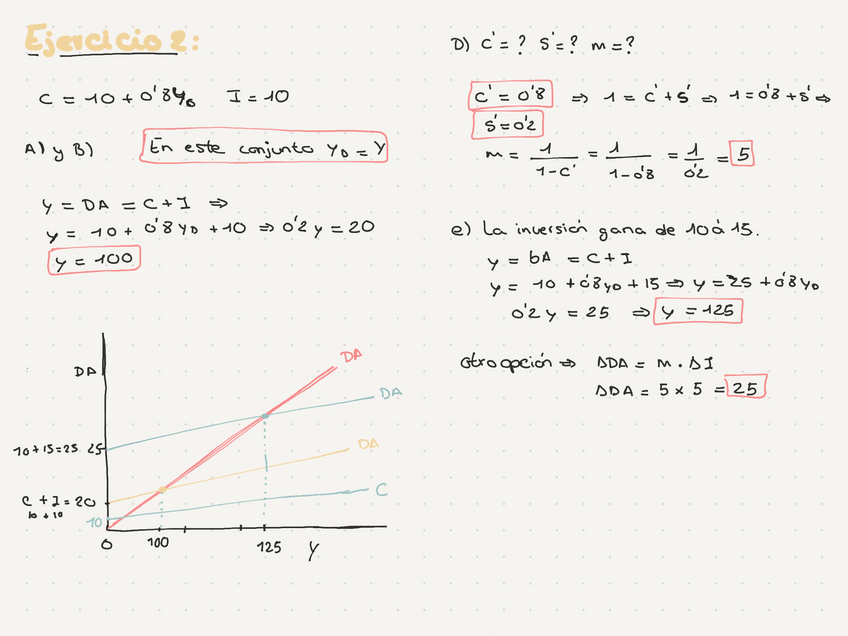 Ejercicio 2:
C = 10 + 0'8Y₀ I = 10
A) y B) En este conjunto Y_D = Y
Y = DA = C + I ⇒
Y = 10 + 0'8 Y_D + 10 ⇒ 0'2 Y = 20
Y = 100
DA
DA
DA
10+15=25 25
DA
C + I = 20
10 + 10
C
10
0 100 125 Y
D) C' = ? S' = ? m = ?
C' = 0'8 ⇒ 1 = C' + S' ⇒ 1 = 0'8 + S' ⇒
S' = 0'2
m = 1/(1-C') = 1/(1-0'8) = 1/0'2 = 5
e) La inversión gana de 10 a 15.
Y = bA = C + I
Y = 10 + 0'8Y_D + 15 ⇒ Y = 25 + 0'8Y_D
0'2 Y = 25 ⇒ Y = 125
Otra opción ⇒ ΔDA = m · ΔI
ΔDA = 5 x 5 = 25